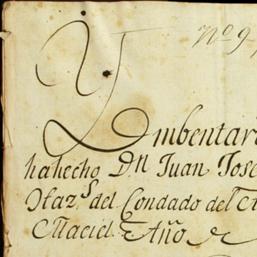 No 9
Ymbentar
ha hecho Dn Juan Jose
Hazs del Condado del
Maciel. Año